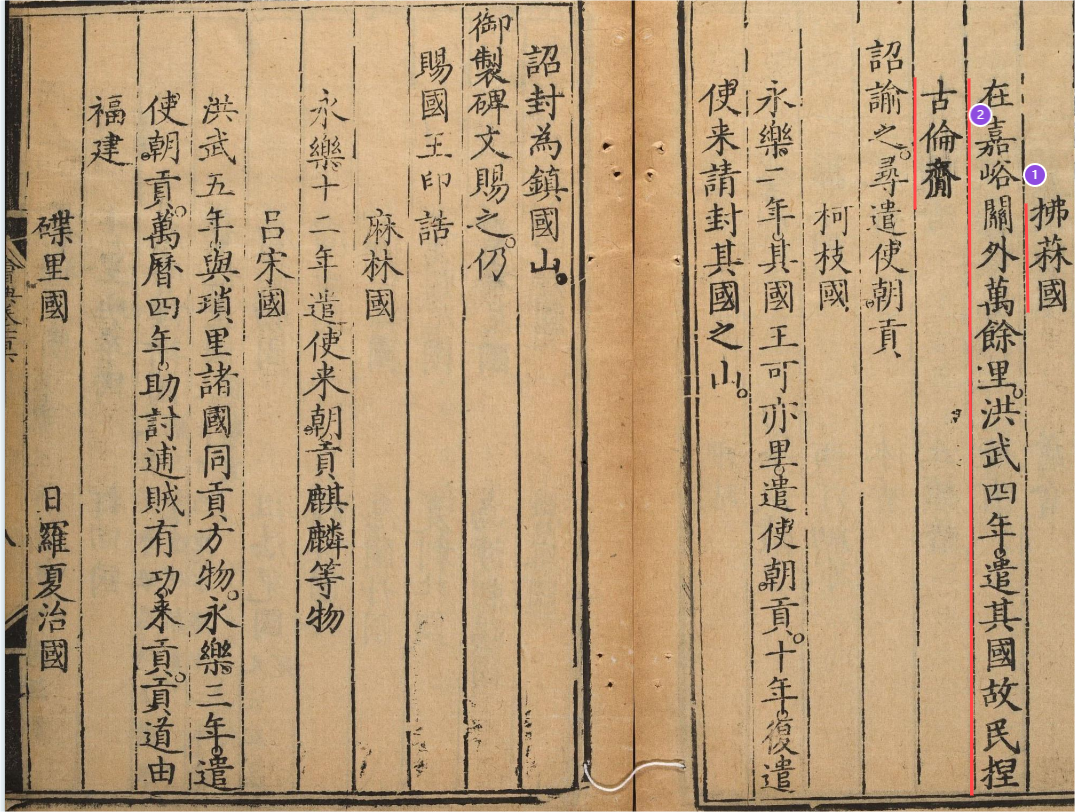 拂菻國
在嘉峪關外萬餘里。洪武四年。遣其國故民捏
古倫齎
詔諭之。尋遣使朝貢
柯枝國
永樂二年。其國王可亦里。遣使朝貢。十年。復遣
使来請封其國之山。
詔封為鎮國山。
御製碑文賜之。仍
賜國王印誥
麻林國
永樂十二年遣使来朝。貢麒麟等物
吕宋國
洪武五年。與瑣里諸國同貢方物。永樂三年。遣
使朝貢。萬曆四年。助討逋賊有功。来貢。貢道由
福建
碟里國 日羅夏治國
2
1